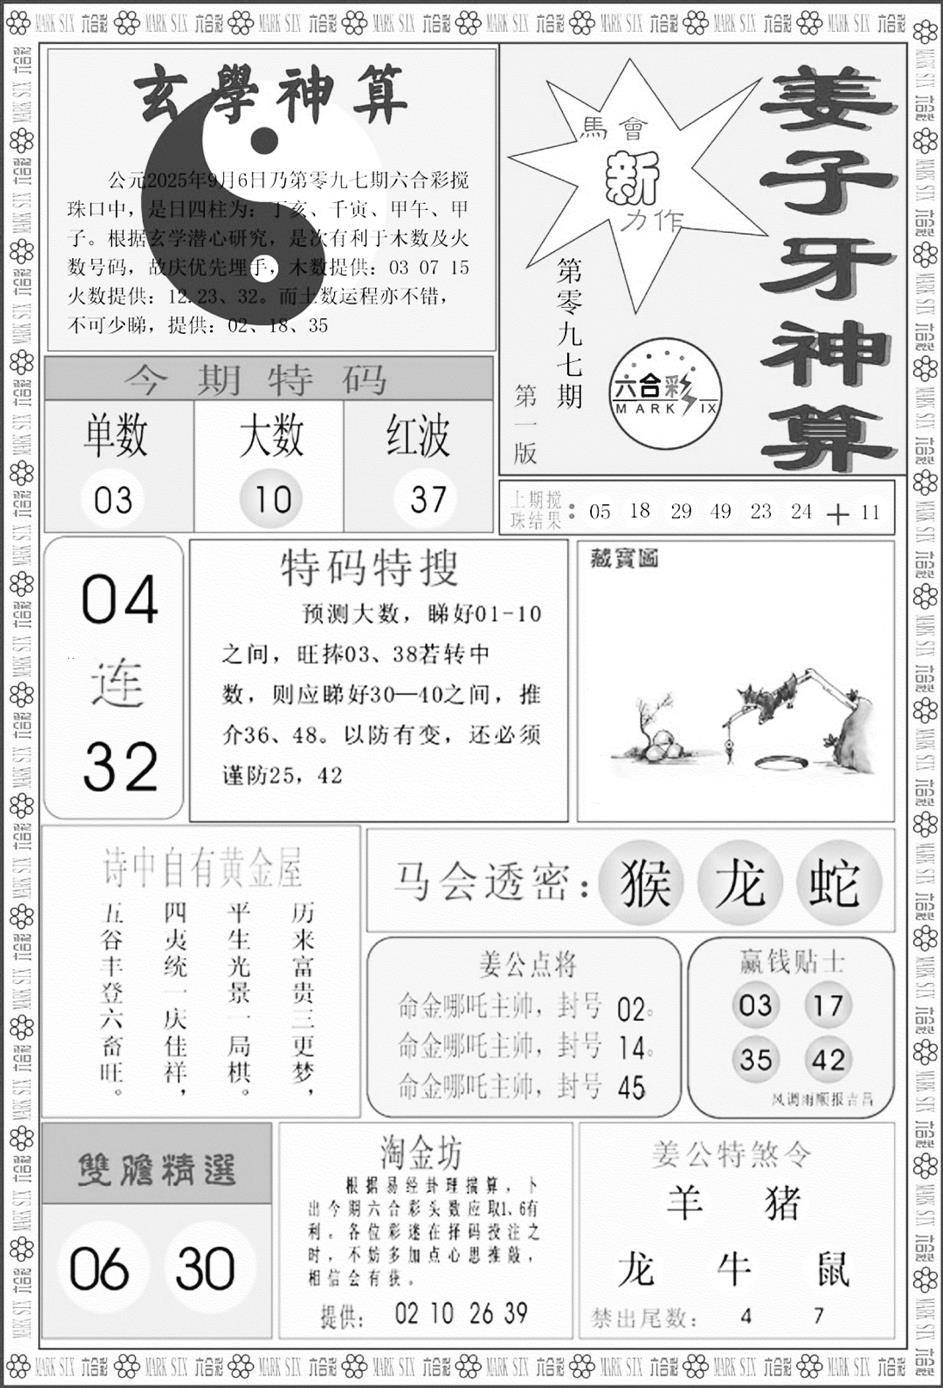 玄學神算
公元2025年9月6日乃第零九七期六合彩搅
珠口中，是日四柱为：丁亥、千寅、甲午、甲
子。根据玄学潜心研究，是次有利于木数及火
数号码，故庆优先埋手，木数提供：03 07 15
火数提供：12.23、32。而土数运程亦不错，
不可少睇，提供：02、18、35
馬會
新
力作
第零九七期
第一版
姜子牙神算
六合彩
MARK SIX
今期特码
单数 大数 红波
03 10 37
上期搅
珠结果：05 18 29 49 23 24 + 11
04
连
32
特码特搜
预测大数，睇好01-10
之间，旺捧03、38若转中
数，则应睇好30—40之间，推
介36、48。以防有变，还必须
谨防25，42
藏寶圖
诗中自有黄金屋
历来富贵三更梦，
平生光景一局棋。
四夷统一庆佳祥，
五谷丰登六畜旺。
马会透密：猴 龙 蛇
姜公点将
命金哪吒主帅，封号 02。
命金哪吒主帅，封号 14。
命金哪吒主帅，封号 45
赢钱贴士
03 17
35 42
风调雨顺报吉昌
雙膽精選
06 30
淘金坊
根据易经卦理揣算，卜
出今期六合彩头数应取1、6有
利。各位彩迷在择码投注之
时，不妨多加点心思推敲，
相信会有获。
提供： 02 10 26 39
姜公特煞令
羊 猪
龙 牛 鼠
禁出尾数： 4 7